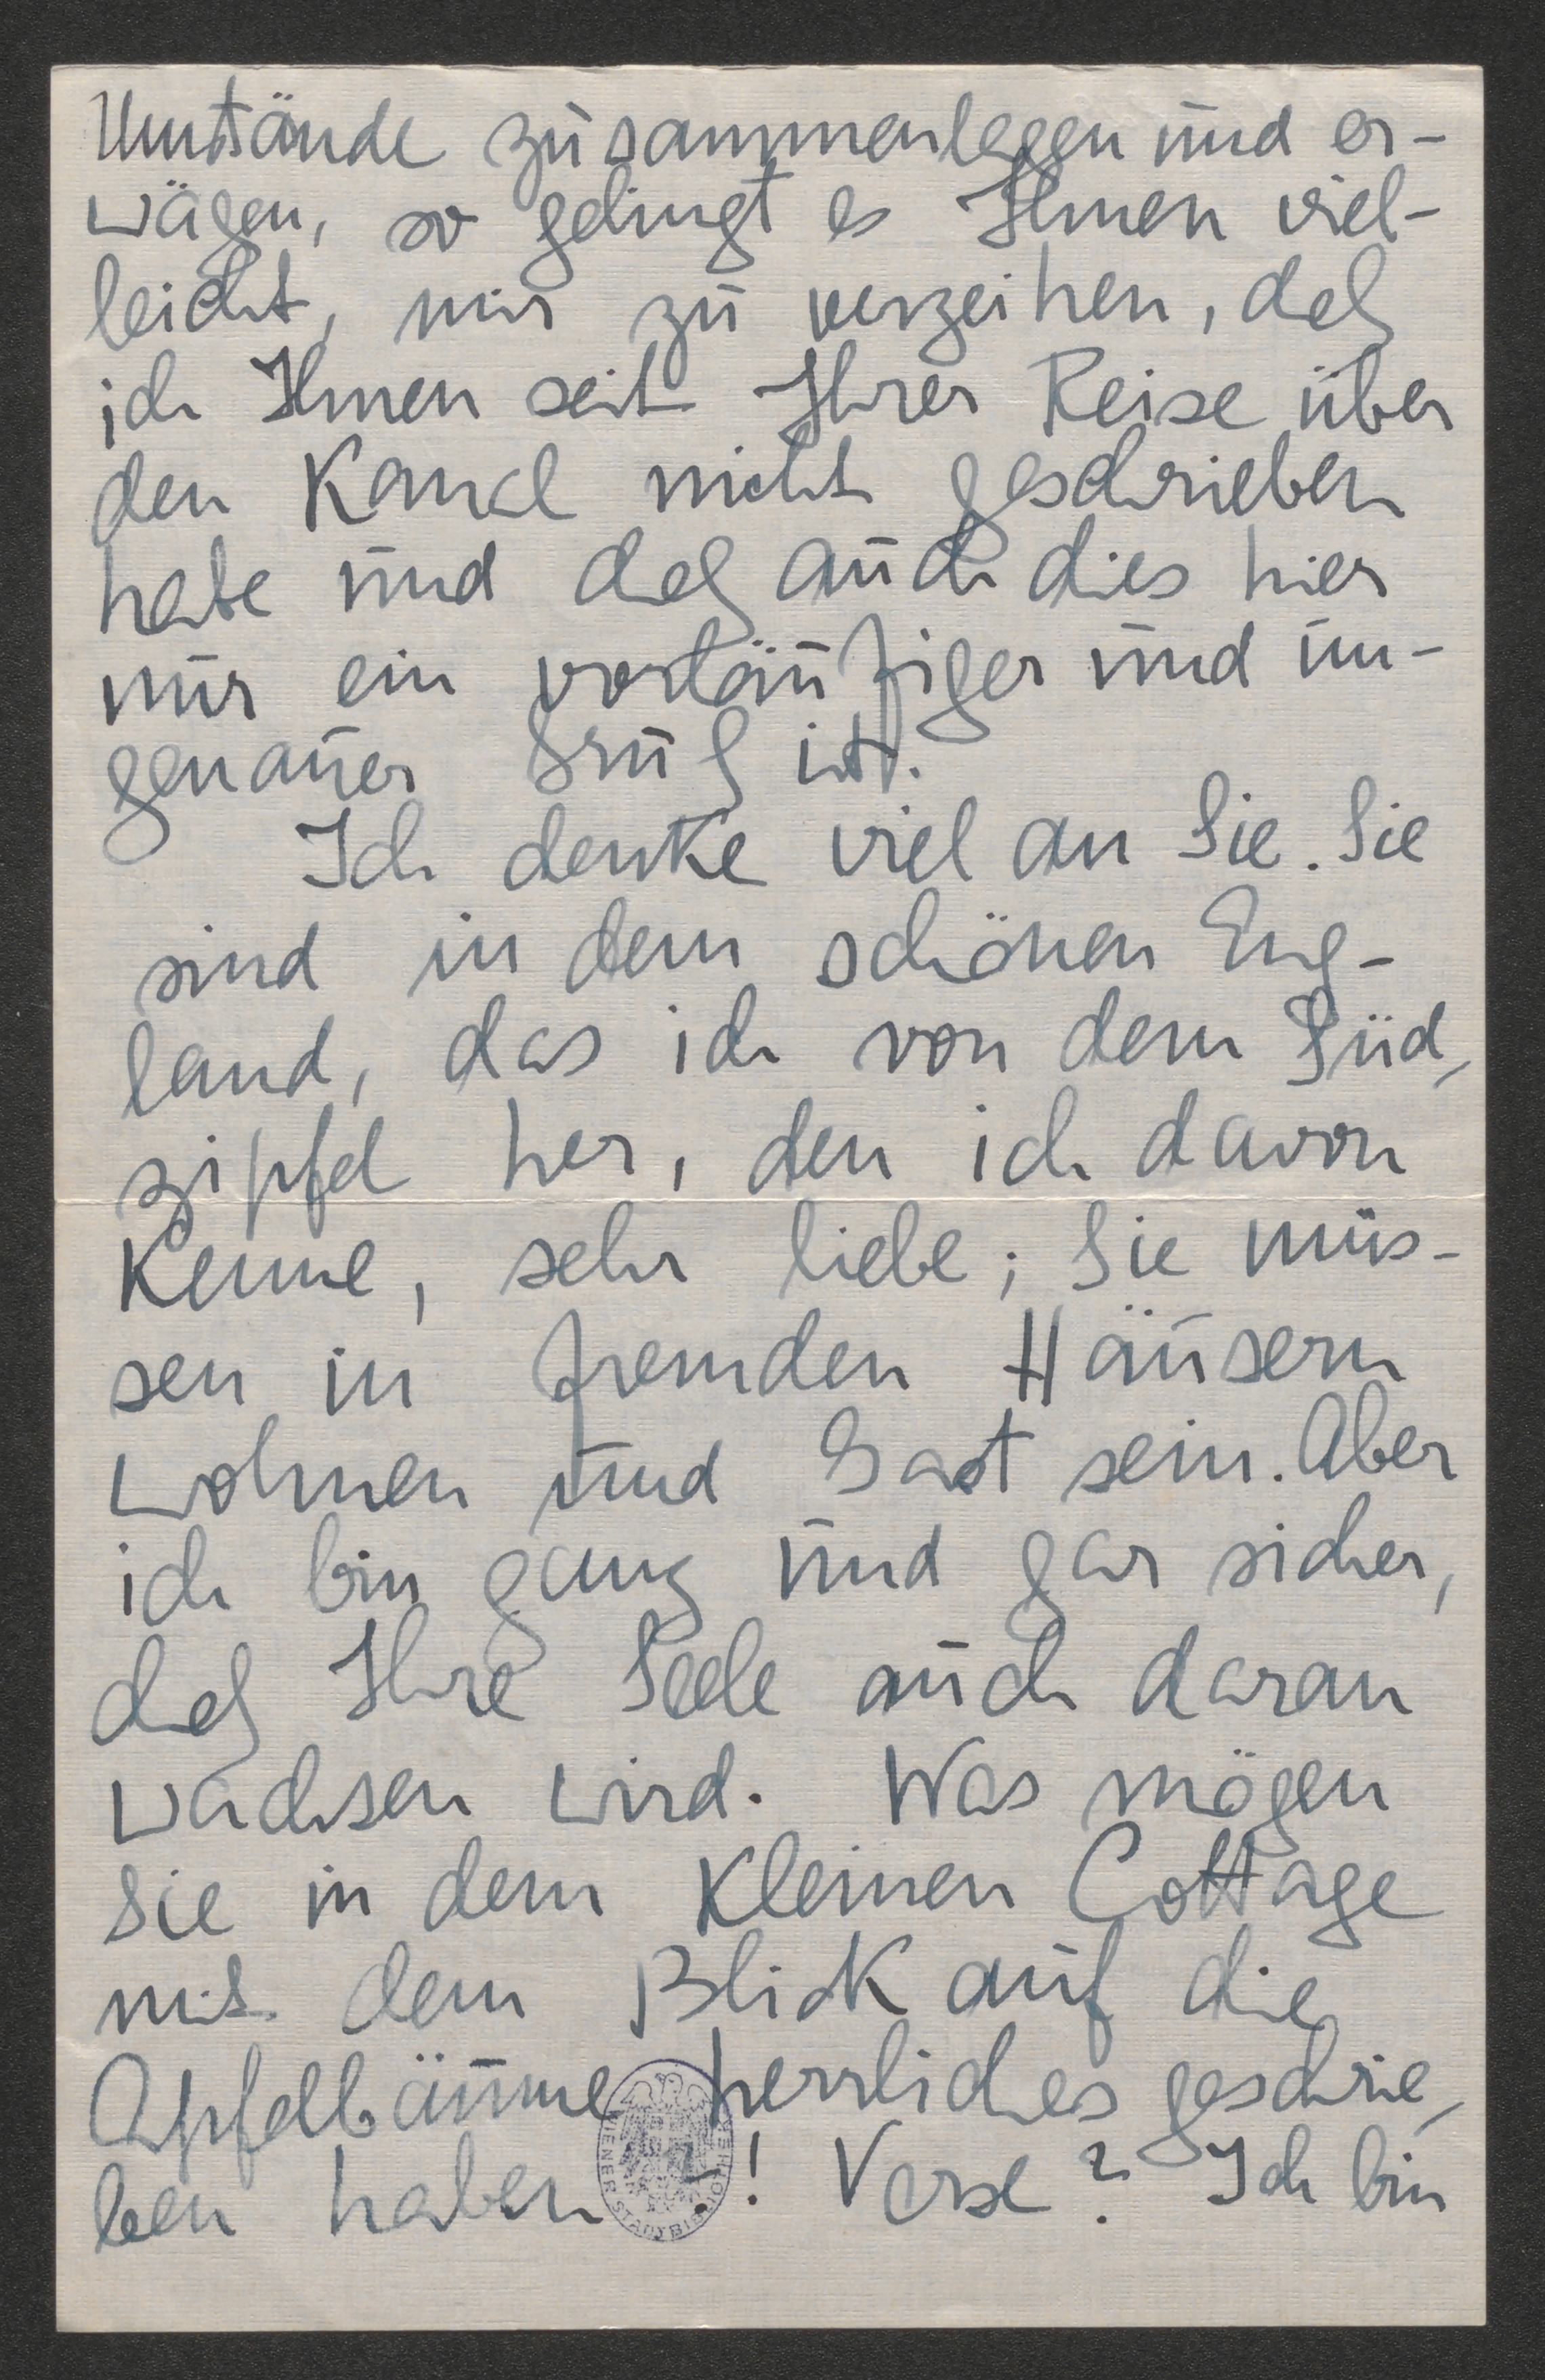 Umstände zusammenlegen und er-
wägen, so gelingt es Ihnen viel-
leicht, mir zu verzeihen, daß
ich Ihnen seit Ihrer Reise über
den Kanal nicht geschrieben
habe und daß auch dies hier
nur ein vorläufiger und un-
genauer Gruß ist.
Ich denke viel an Sie. Sie
sind in dem schönen Eng-
land, das ich von dem Süd-
zipfel her, den ich davon
kenne, sehr liebe; Sie müs-
sen in fremden Häusern
wohnen und Gast sein. Aber
ich bin ganz und gar sicher,
daß Ihre Seele auch daran
wachsen wird. Was mögen
Sie in dem kleinen Cottage
mit dem Blick auf die
Apfelbäume herrliches geschrie-
ben haben! Verse? Ich bin
WIENER STADTBIBLIOTHEK